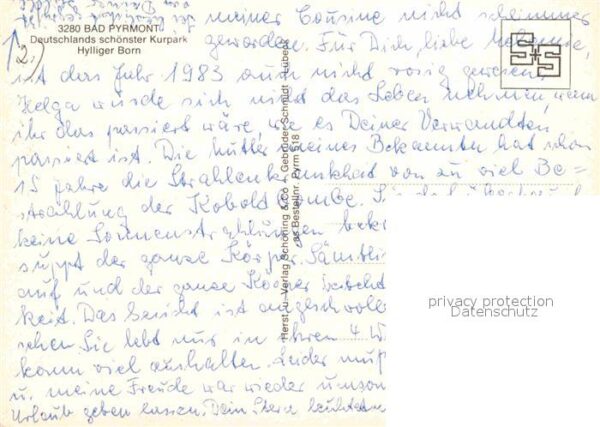 3280 BAD PYRMONT
Deutschlands schönster Kurpark
Hylliger Born
2.)
meiner Cousine nicht schlimmer
geworden. Für Dich, liebe
ist das Jahr 1983 auch nicht rosig gewesen,
Helga würde sich nicht das Leben nehmen, wenn
ihr das passiert wäre, wie es Deiner Verwandten
passiert ist. Die Mutter meines Bekannten hat schon
15 Jahre die Strahlenkrankheit von zu viel Be=
strahlung der Kobold
keine Sonnenstrahlungen
suppt der ganze Körper. Sämtli
auf und der ganze Körper
keit. Das Gesicht ist angeschwolle
sehen Sie lebt nur in ihren 4 W
kann viel aushalten. Leider muß
u. meine Freude war wieder umson
Urlaub geben lassen. Dein Stern
Herst. u. Verlag Schöning & Co + Gebrüder Schmidt Lübeck
Bestellnr. Pyrm S 18
privacy protection
Datenschutz